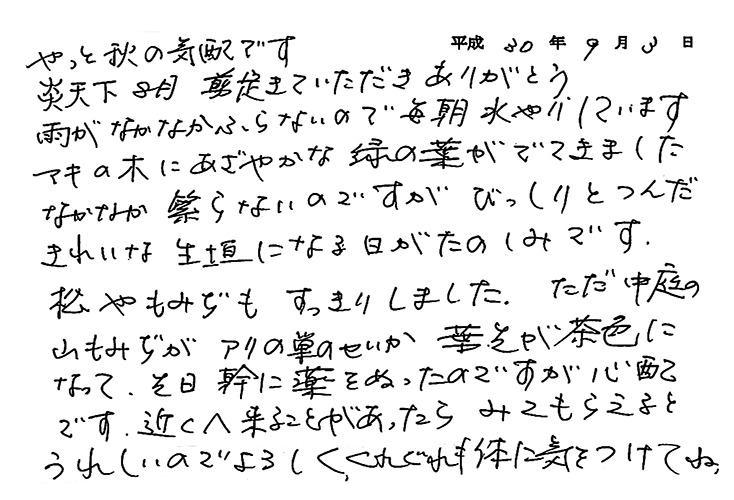 平成 30 年 9 月 3 日
やっと秋の気配です
炎天下 8月 剪定きていただき ありがとう
雨が なかなかふらないので 毎朝 水やりしています
マキの木に あざやかな 緑の葉がでてきました
なかなか 繁らないのですが びっしりとつんだ
きれいな 生垣になる日がたのしみです.
松やもみぢも すっきりしました. ただ中庭の
山もみぢが アリの巣のせいか 葉先が茶色に
なって、先日 幹に薬をぬったのですが心配
です. 近くへ来ることがあったら みてもらえると
うれしいのでよろしく、くれぐれも体に気をつけてね,